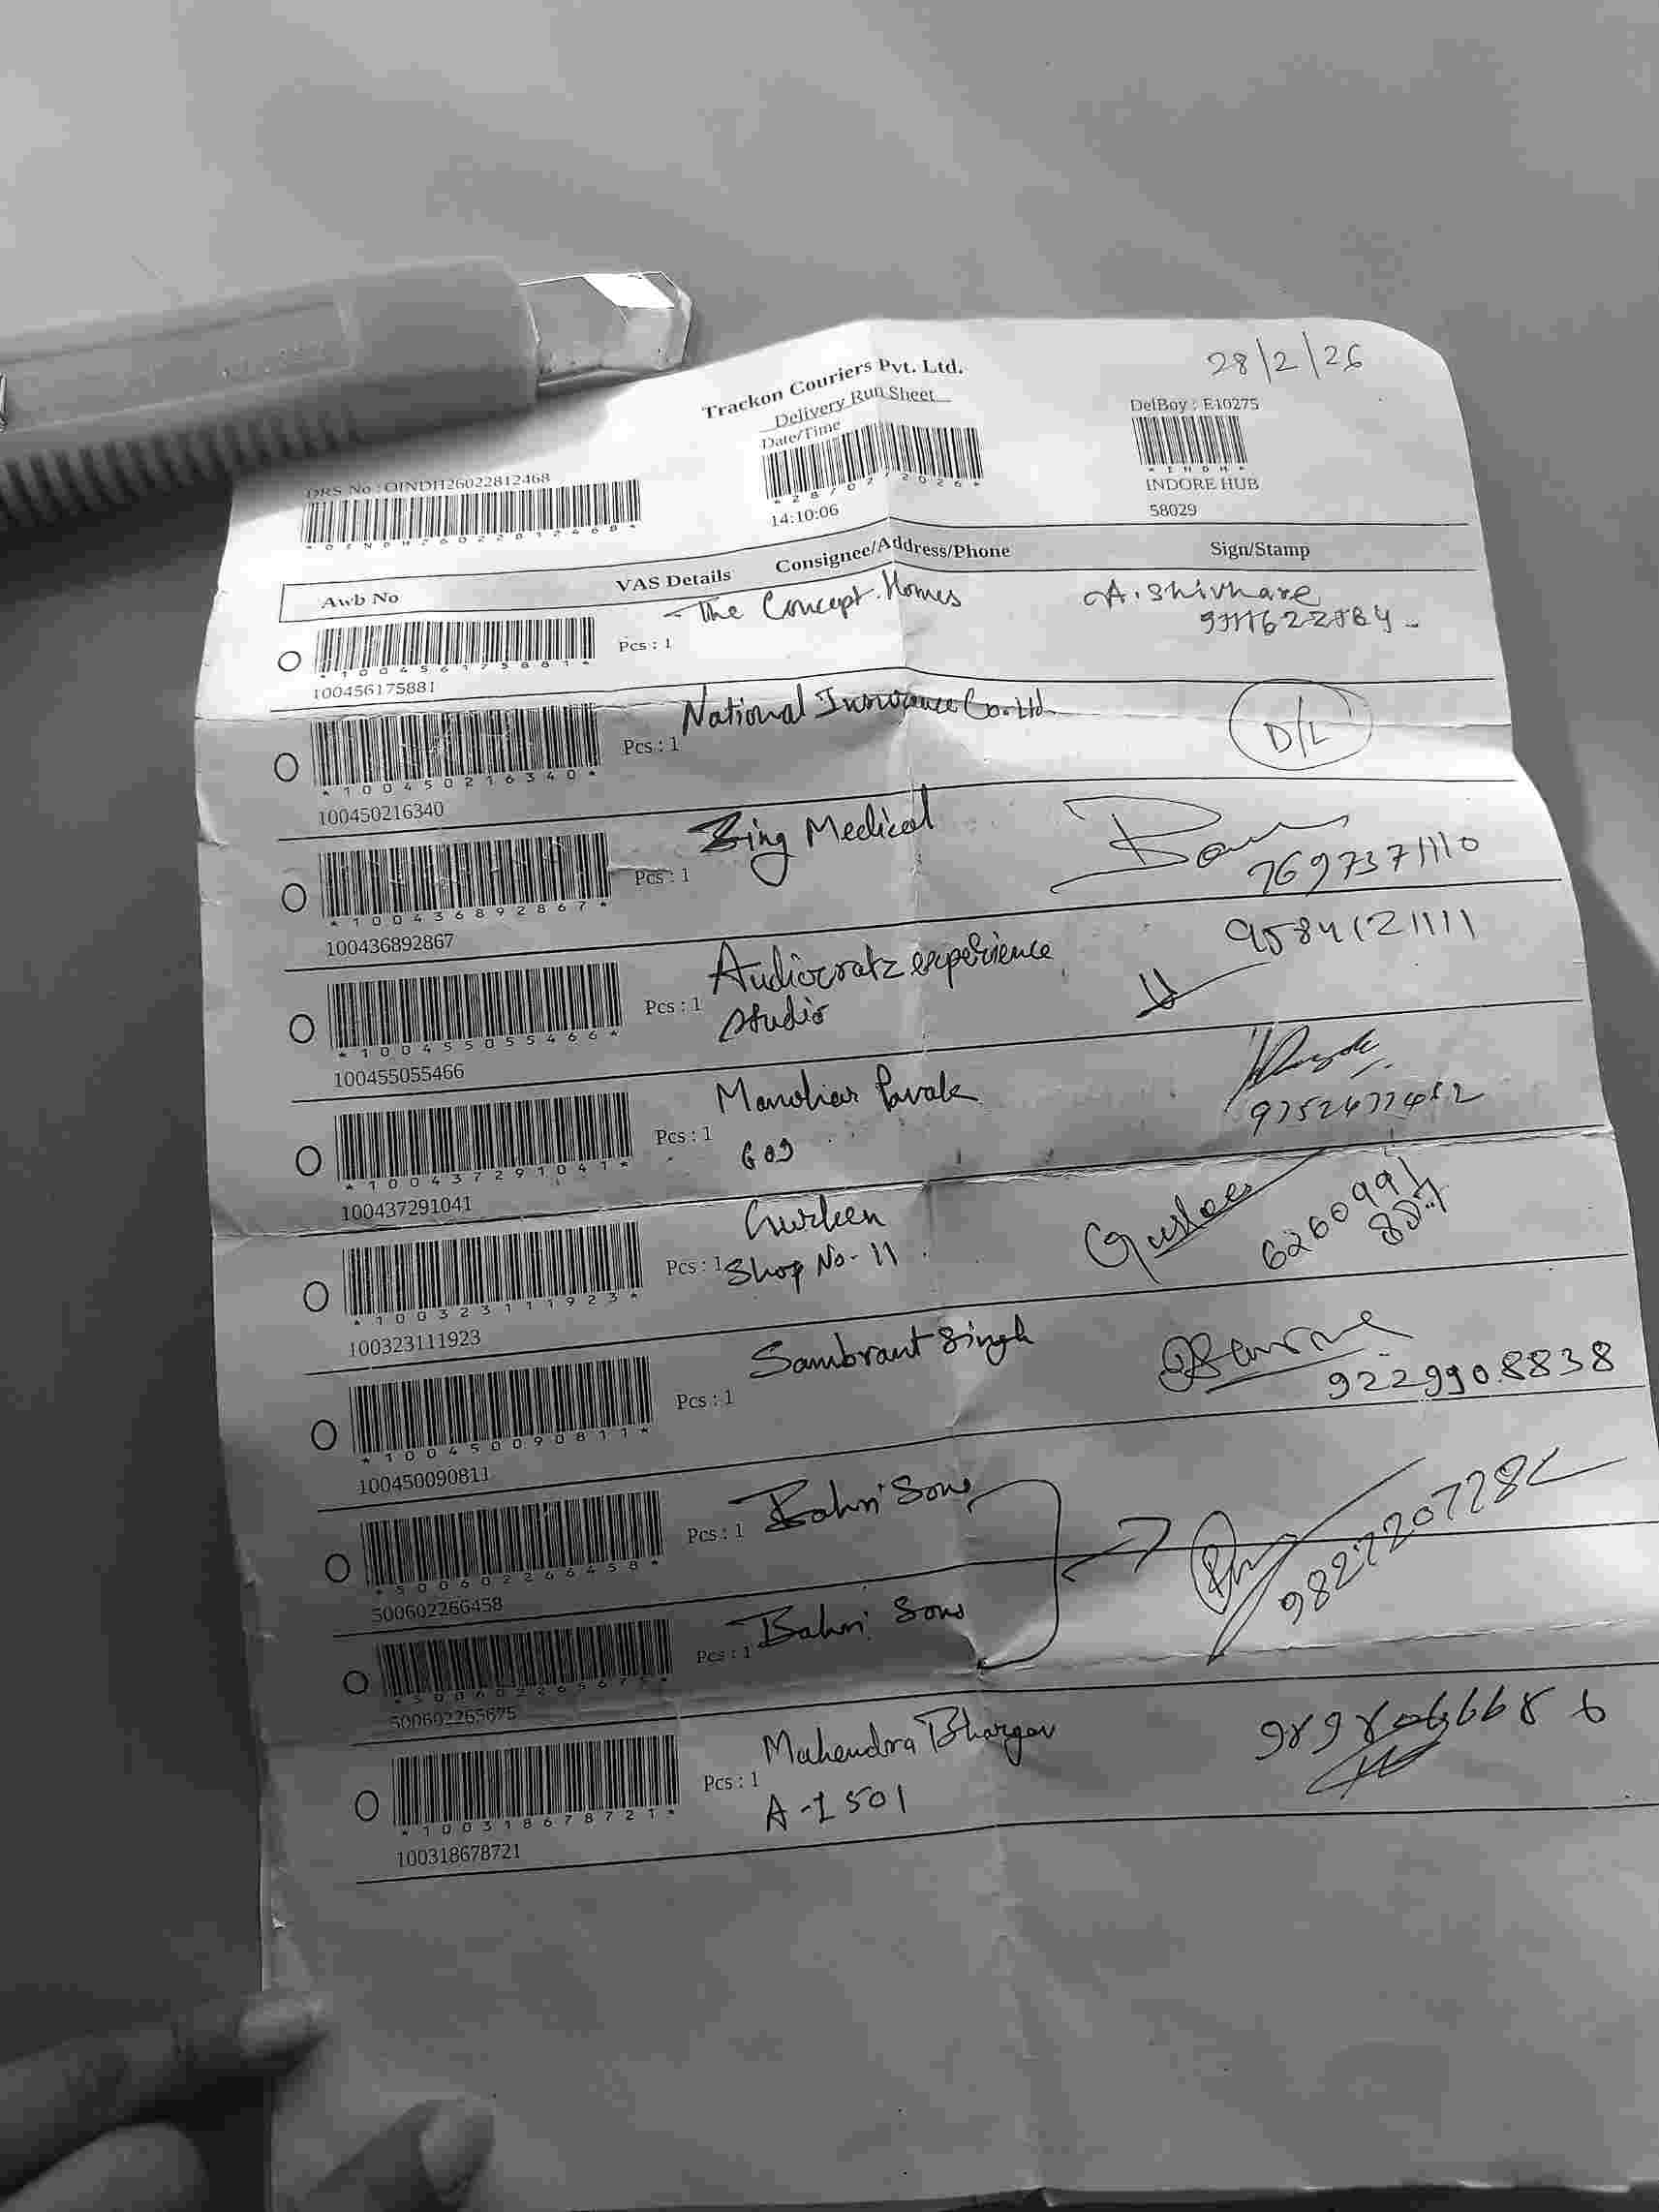 28/2/26
Trackon Couriers Pvt. Ltd.
Delivery Run Sheet
DelBoy : E10275
Date/Time
DRS No : OINDH26022812468
*28/02/2026*
*INDH*
INDORE HUB
*OINDH26022812468*
14:10:06
58029
Awb No VAS Details Consignee/Address/Phone Sign/Stamp
The Concept Homes A. Shivhare
Pcs : 1
*100456175881*
100456175881
National Insurance Co. Ltd
Pcs : 1 D/L
*100450216340*
100450216340
Zing Medical
Pcs : 1 7697371110
*100436892867*
100436892867
Audiocratz experience 9584121111
Pcs : 1 studio
*100455055466*
100455055466
Manohar
Pcs : 1 609
*100437291041*
100437291041
Gurleen
Pcs : 1 Shop No- 11 6260991
*100323111923*
100323111923
Sambrant Singh
Pcs : 1 9229908838
*100450090811*
100450090811
Bahri Sons
Pcs : 1
*500602266458*
500602266458
Bahri Sons
Pcs : 1
*500602265675*
500602265675
Mahendra Bhargav
Pcs : 1 A-1501
*100318678721*
100318678721